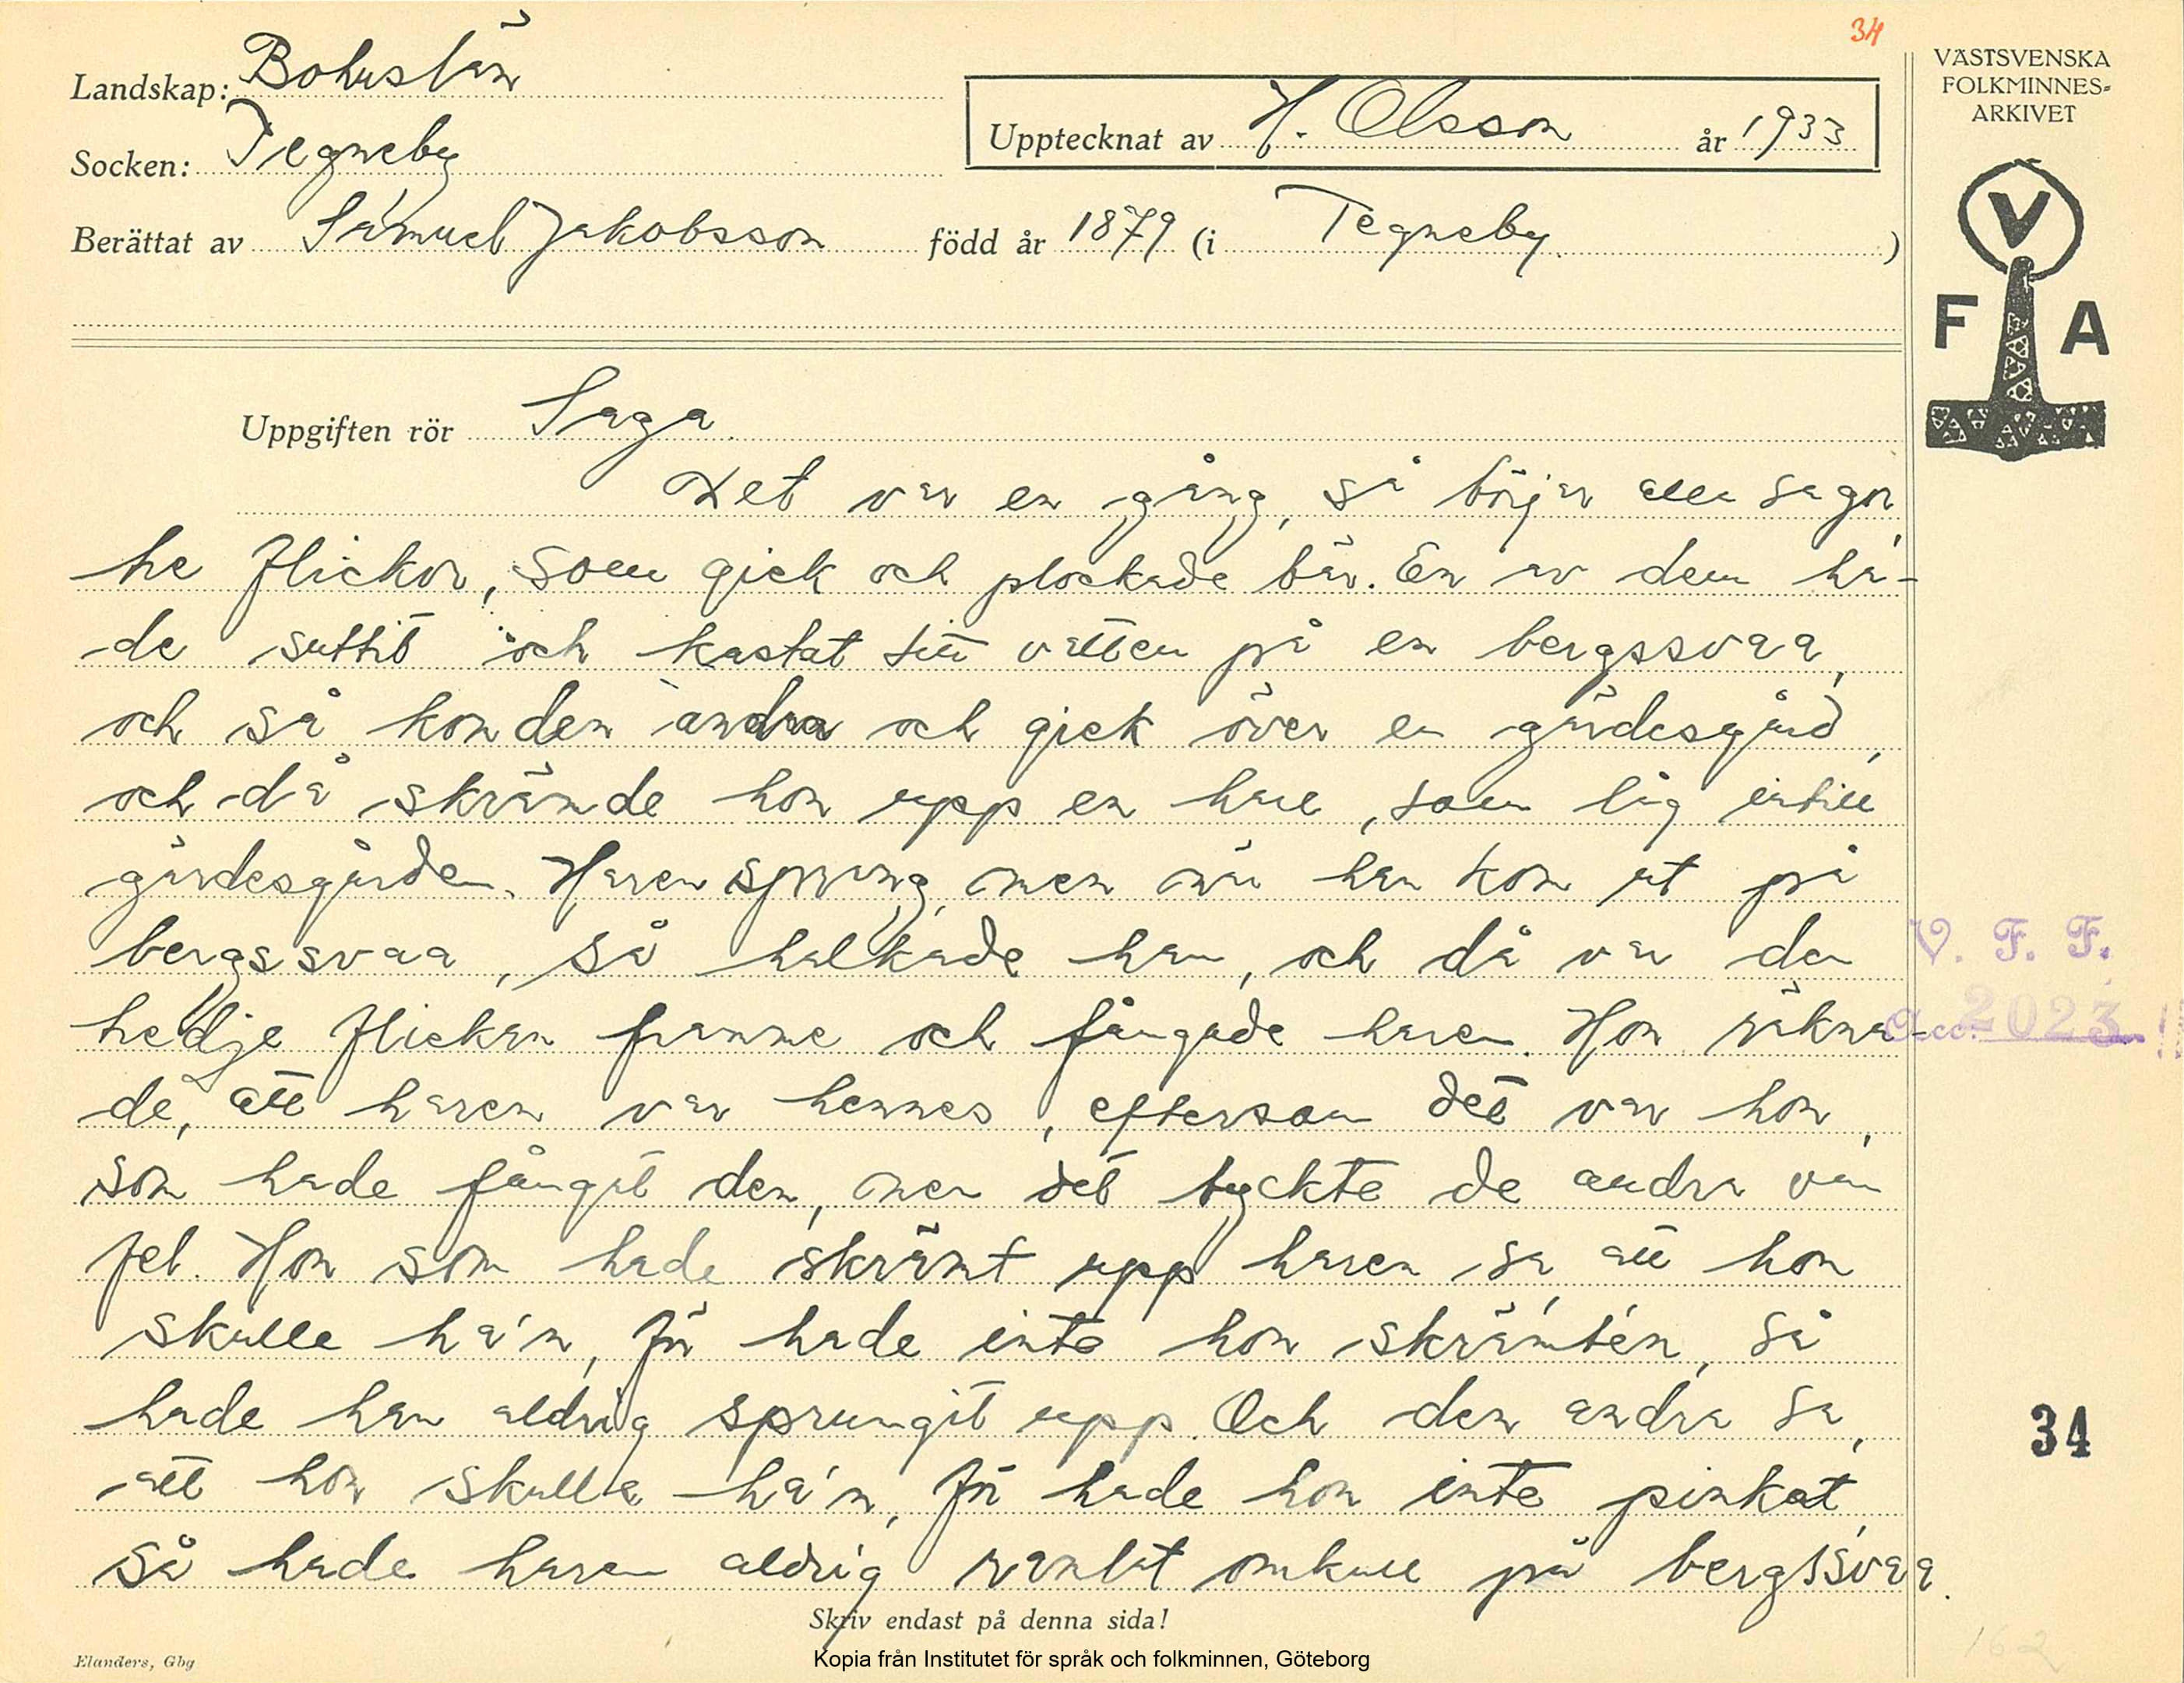 34
Landskap: Bohuslän
Socken: Tegneby
Upptecknat av H. Olsson år 1933
Berättat av Samuel Jakobsson född år 1879 (i Tegneby.)
VÄSTSVENSKA
FOLKMINNES=
ARKIVET
V
F A
Uppgiften rör Saga.
Det var en gång, så börjar alla sagor,
tre flickor, som gick och plockade bär. En av dem ha-
de suttit och kastat sitt vatten på en bergssvaa,
och så kom den andra och gick över en gärdesgård,
och då skrämde hon upp en hare, som låg intill
gärdesgården. Haren sprang, men när han kom ut på
bergssvaa, så halkade han, och då var den
tredje flickan framme och fångade haren. Hon räkna-
de, att haren var hennes, eftersom det var hon,
som hade fångat den, men det tyckte de andra var
fel. Hon som hade skrämt upp haren sa, att hon
skulle ha'n, för hade inte hon skrämt'en, så
hade han aldrig sprungit upp. Och den andra sa,
att hon skulle ha'n, för hade hon inte pinkat,
så hade haren aldrig ramlat omkull på bergssvaa.
V. F. F.
acc. 2023
34
Skriv endast på denna sida!
Elanders, Gbg
Kopia från Institutet för språk och folkminnen, Göteborg
162